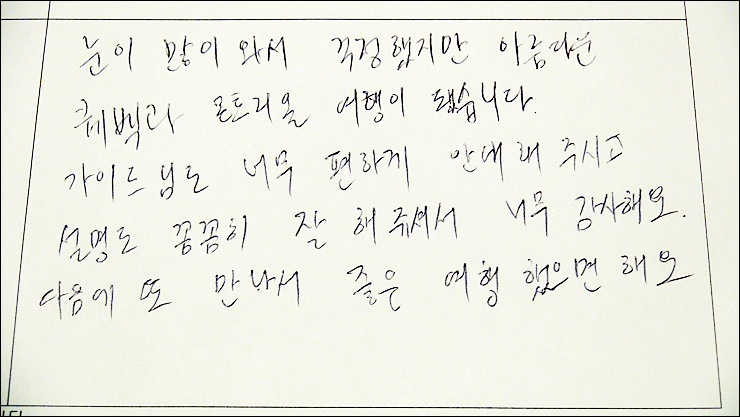 눈이 많이 와서 걱정했지만 아름다운
퀘벡과 몬트리올 여행이 됐습니다.
가이드님도 너무 편하게 안내해 주시고
설명도 꼼꼼히 잘 해주셔서 너무 감사해요.
다음에 또 만나서 좋은 여행 했으면 해요